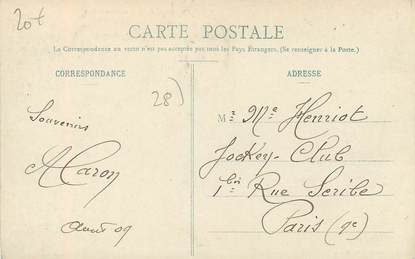 20f
CARTE POSTALE
La Correspondance au verso n'est pas acceptée par tous les Pays Étrangers. (Se renseigner à la Poste.)
CORRESPONDANCE
ADRESSE
28)
Souvenirs
A Caron
Août 09
M.r Me Henriot
Jockey-Club
1bis Rue Scribe
Paris (9e)